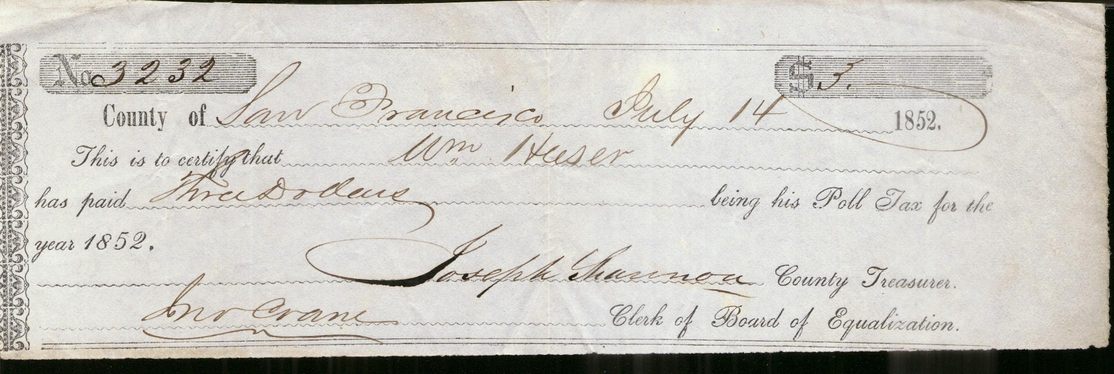 No. 3232 $ 3.
County of San Francisco July 14 1852.
This is to certify that Wm Heeser
has paid Three Dollars being his Poll Tax for the
year 1852.
Joseph Shannon County Treasurer.
Jno Crane Clerk of Board of Equalization.